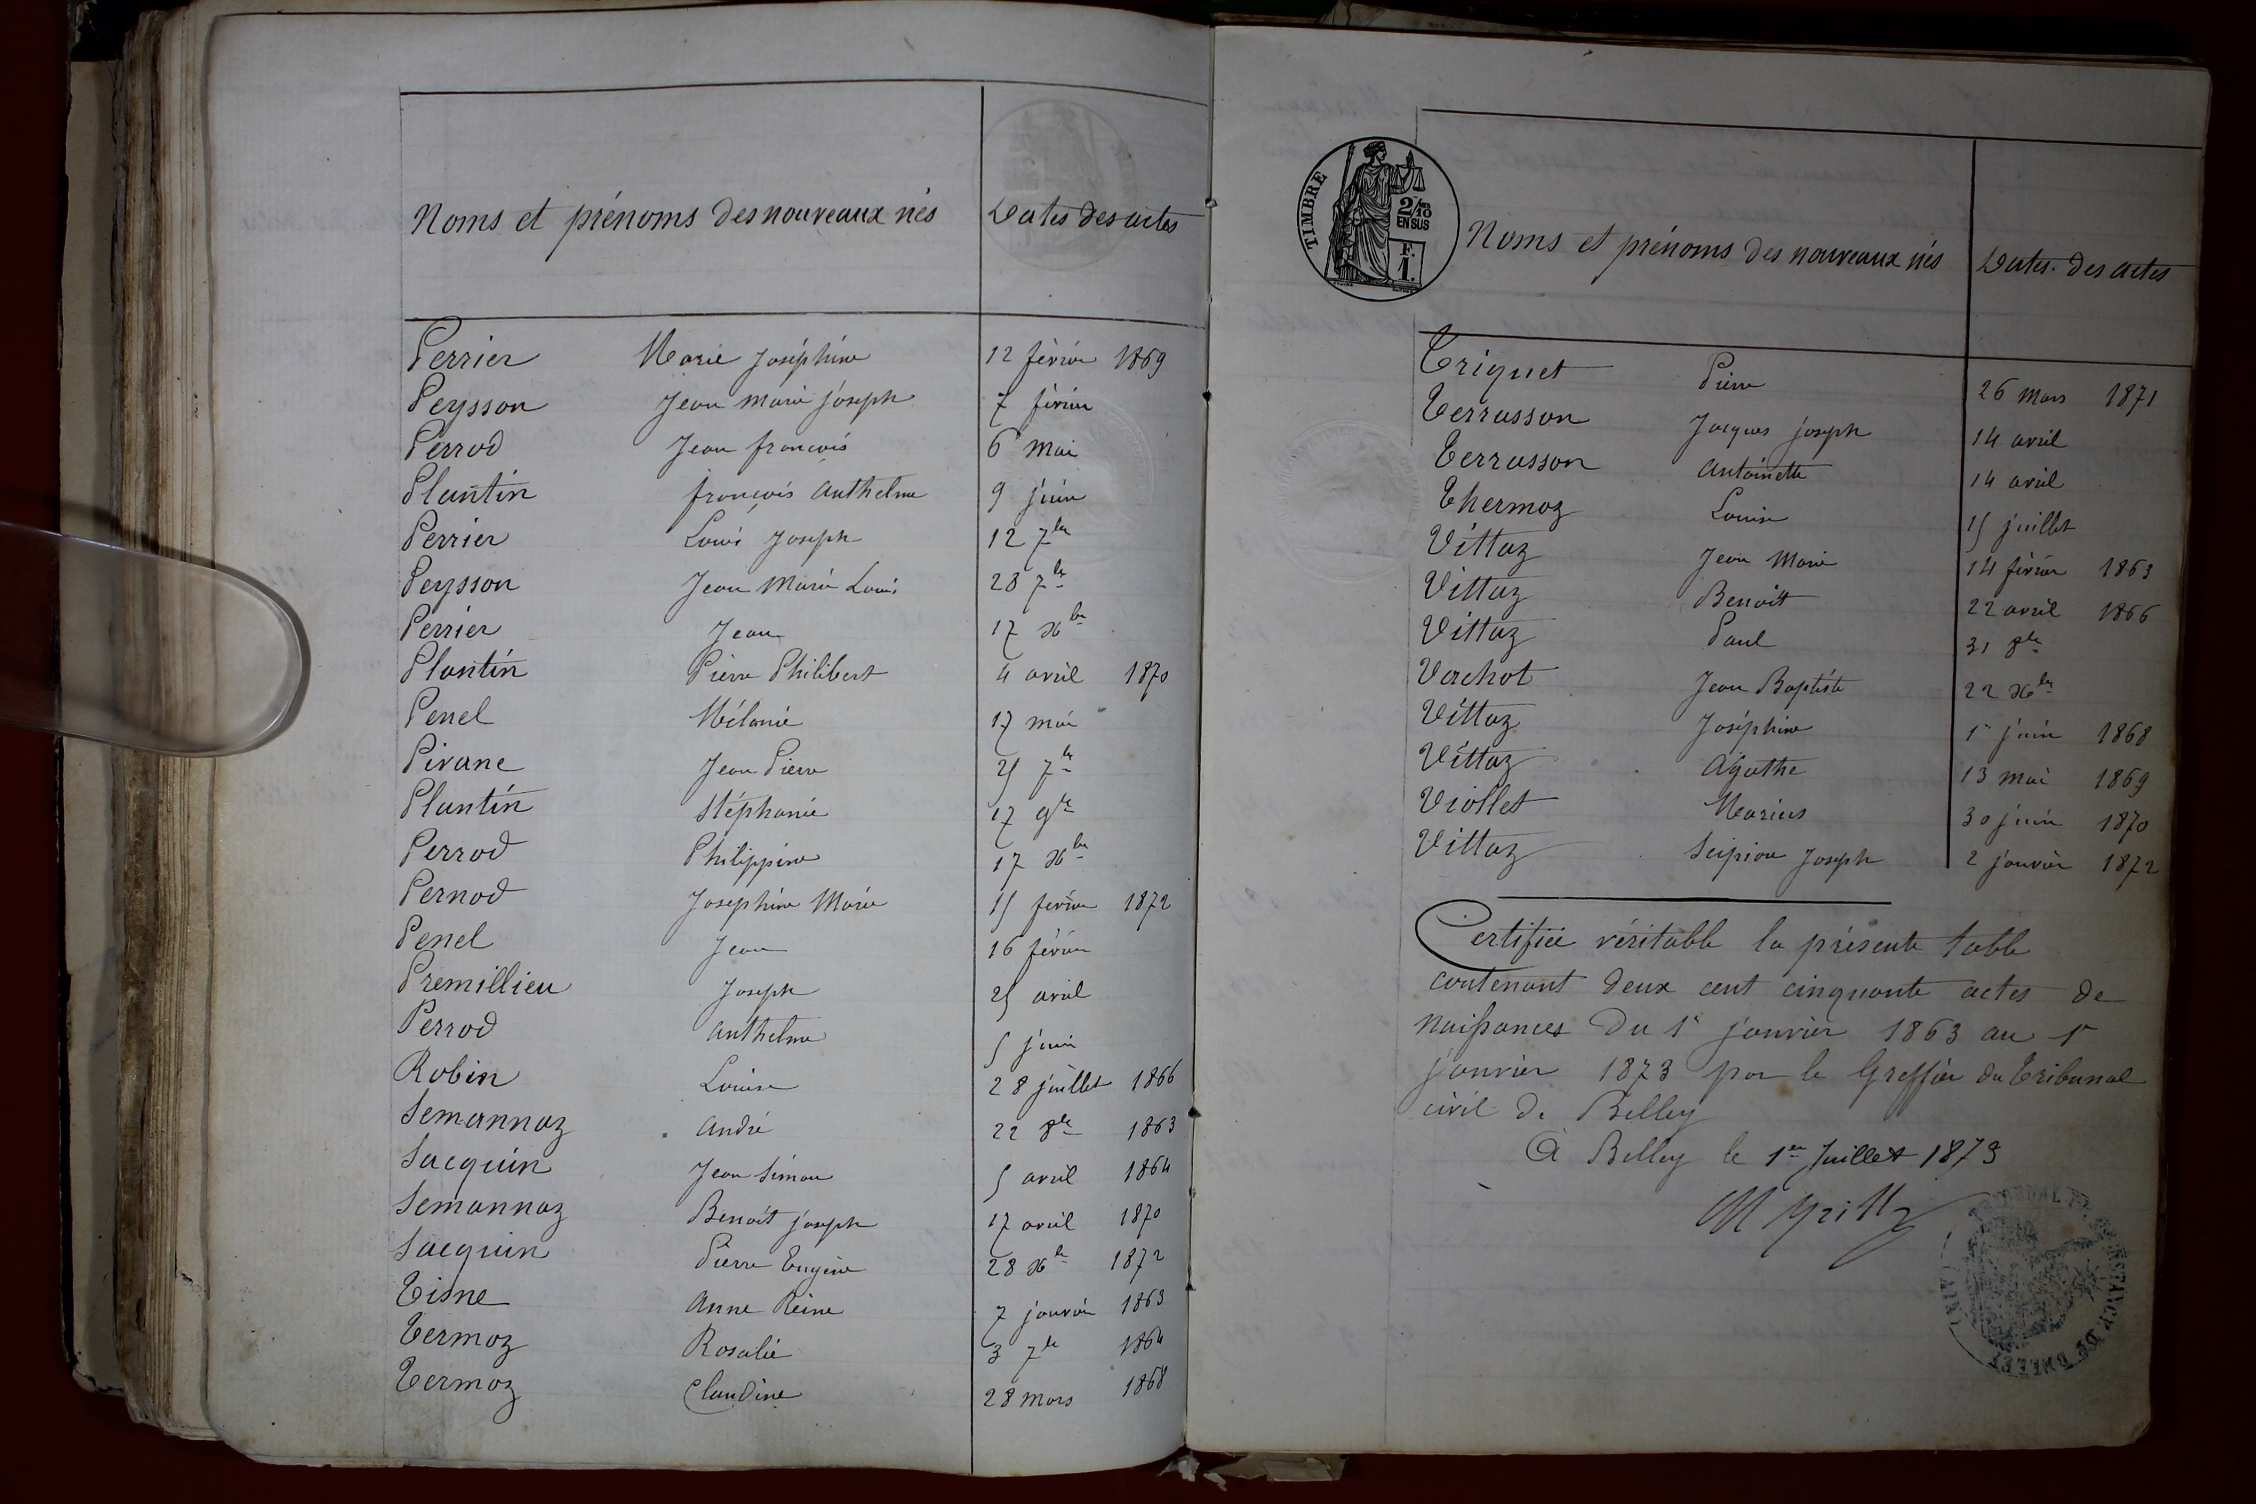 Noms et prénoms des nouveaux nés Dates des actes
Perrier Marie Joséphine 12 février 1869
Peysson Jean Marie Joseph 7 février
Perrod Jean françois 6 Mai
Plantin françois Anthelme 9 juin
Perrier Louis Joseph 12 7bre
Peysson Jean Marie Louis 28 7bre
Perrier Jean 17 Xbre
Plantin Pierre Philibert 4 avril 1870
Penel Mélanie 17 mai
Pivane Jean Pierre 25 7bre
Plantin Stéphanie 17 9bre
Perrod Philippine 17 Xbre
Pernod Joséphine Marie 15 février 1872
Penel Jean 16 février
Premillieu Joseph 25 avril
Perrod Anthelme 5 juin
Robin Louise 28 juillet 1866
Semannaz André 22 8bre 1863
Sacquin Jean Simon 5 avril 1864
Semannaz Benoit Joseph 17 avril 1870
Sacquin Pierre Eugène 28 Xbre 1872
Tisne Anne Reine 7 janvier 1863
Termoz Rosalie 3 7bre 1864
Termoz Claudine 28 mars 1868
TIMBRE
2/10 EN SUS
F. 1.
Noms et prénoms des nouveaux nés Dates des actes
Triquet Pierre 26 mars 1871
Terrasson Jacques Joseph 14 avril
Terrasson Antoinette 14 avril
Thermoz Louise 15 juillet
Vittaz Jean Marie 14 février 1863
Vittaz Benoit 22 avril 1866
Vittaz Paul 31 8bre
Vachot Jean Baptiste 22 Xbre
Vittaz Joséphine 1er juin 1868
Vittaz Agathe 13 mai 1869
Viollet Marius 30 juin 1870
Vittaz Scipion Joseph 2 janvier 1872
Certifiée véritable la présente table
contenant deux cent cinquante actes de
naissances du 1er janvier 1863 au 1er
janvier 1873 par le Greffier du Tribunal
civil de Belley
A Belley le 1er Juillet 1873